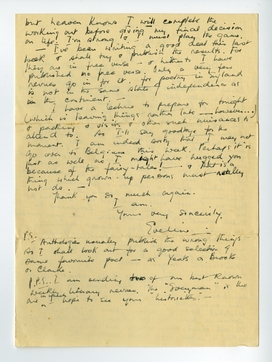 but heaven knows I will complete the
working out before giving my final decision
on life! I'm strong & must play the game.
- I've been writing a good deal this last
week & shall try & publish the results. But
they are in free verse - & hitherto I have
published no free verse. Only a very few
reviews go in for it, for poetry in England
is not in the same state of independence as
on the continent.
I have a lecture to prepare for tonight
(which is leaving things rather late
& packing & visits & other such nuisances to
attend to. So I'll say goodbye for the
moment. I am sorry that I may not
go over to Belgium this week. Perhaps it is
just as well as I might have hugged you
because of the fairy-tale - & that is a
thing which grown-up persons must really
not do. -
Thank you so much again.
I am
Yours very sincerely,
Eveline.
P.S. Anthologies usually publish the wrong things
So I shall look out for a good selection of
some favourite poet - as Yeats or Brooke
or Clarke.
P.P.S. I am sending two of our best known
weekly literary reviews. The "Everyman" is the
I hope to see your